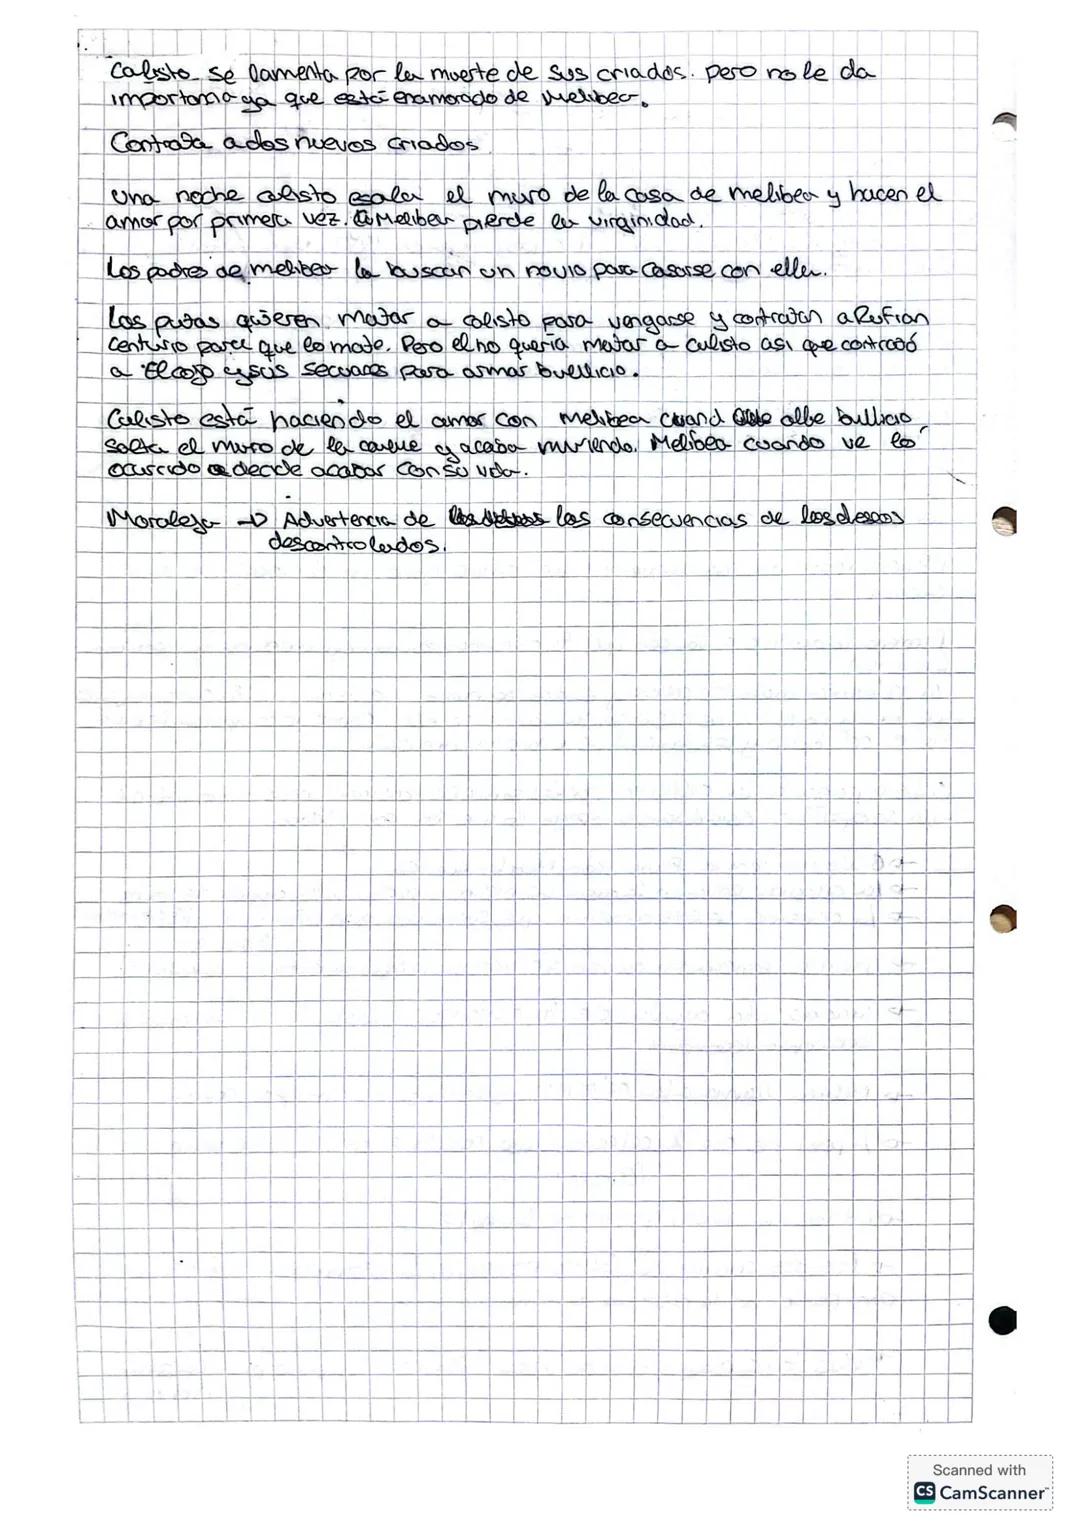 Calisto se lamenta por la muerte de sus criados. pero no le da
importancia ya que está enamorado de Melibea.
Contrata a dos nuevos criados
Una noche calisto escala el muro de la casa de melibea y hacen el
amor por primera vez. Melibea pierde la virginidad.
Los padres de melibea la buscan un novio para casarse con ella.
Las putas quieren matar a calisto para vengarse y contratan a Rufian
Centurio para que lo mate. Pero el no quería matar a calisto asi que contrató
a El cojo y sus secuaces para armar bullicio.
Calisto está haciendo el amor con melibea cuand olle bullicio
salta el muro de la calle y acaba muriendo. Melibea cuando ve lo
ocurrido decide acabar con su vida.
Moraleja → Advertencia de las consecuencias de los deseos
descontrolados.
Scanned with
CS CamScanner